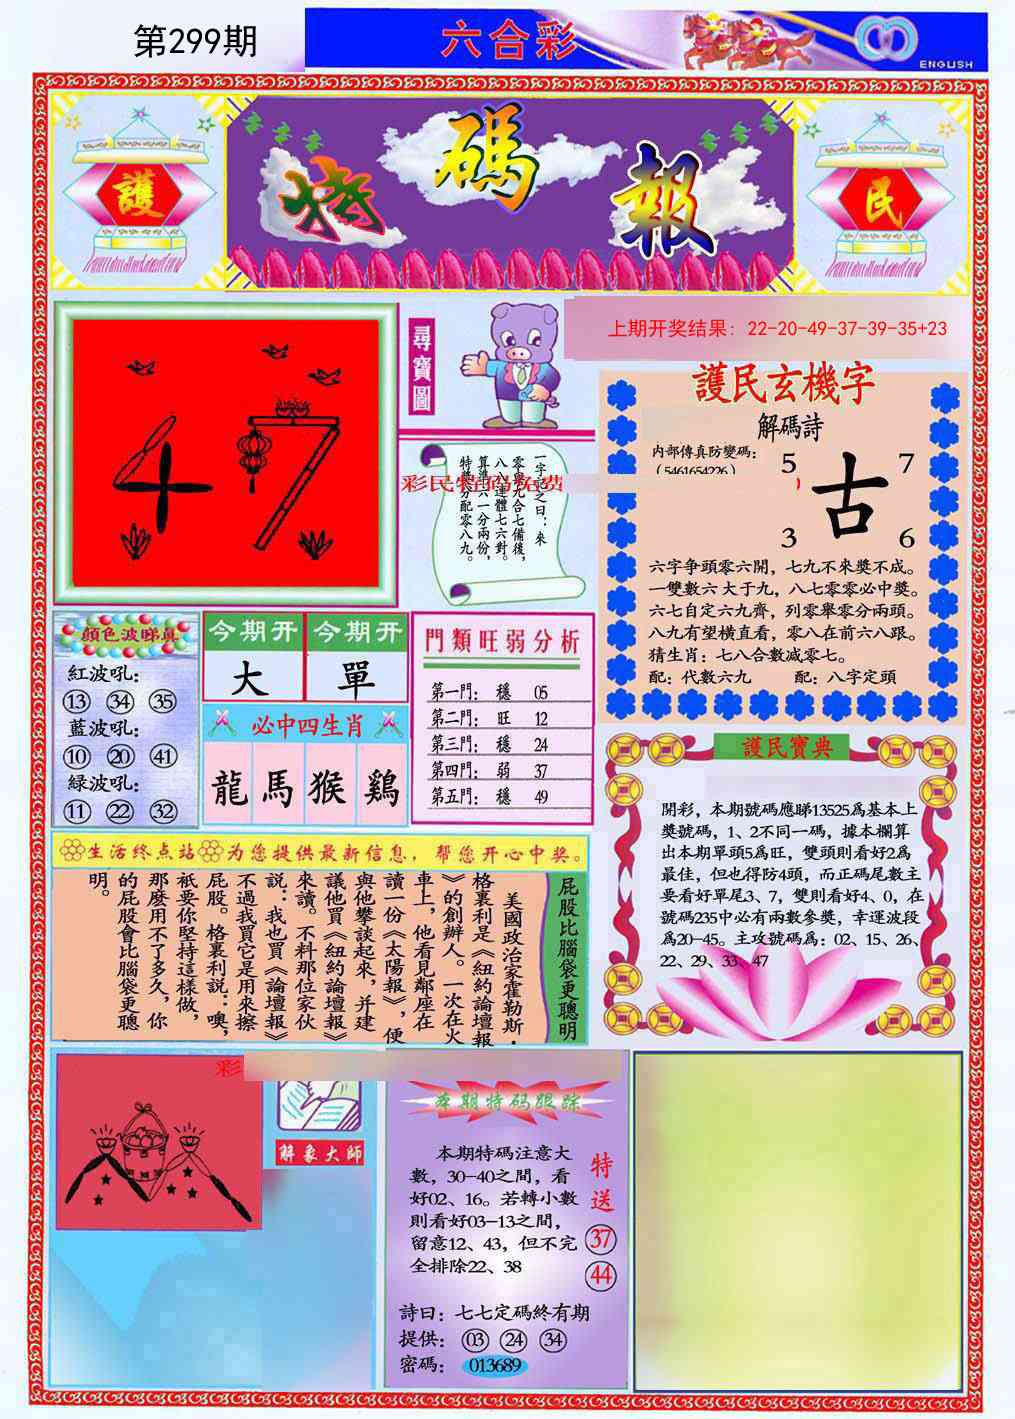 第299期
六合彩
ENGLISH
護
特碼報
民
47
尋寶圖
上期开奖结果: 22-20-49-37-39-35+23
一字記之曰：來
零舉九合七備後，
八八連體七六對。
算準六一分兩份，
特獎分配零八九。
彩民特码免费
護民玄機字
解碼詩
内部傳真防變碼：
（5461654226）
5
7
古
3
6
六字争頭零六開，七九不來獎不成。
一雙數六大于九，八七零零必中獎。
六七自定六九齊，列零舉零分兩頭。
八九有望横直看，零八在前六八跟。
猜生肖：七八合數减零七。
配：代數六九
配：八字定頭
顔色波睇真
紅波吼:
13 34 35
藍波吼:
10 20 41
緑波吼:
11 22 32
今期开
今期开
大
單
必中四生肖
龍 馬 猴 鷄
門類旺弱分析
第一門: 穩 05
第二門: 旺 12
第三門: 穩 24
第四門: 弱 37
第五門: 穩 49
護民寶典
開彩，本期號碼應睇13525爲基本上
獎號碼，1、2不同一碼，據本欄算
出本期單頭5爲旺，雙頭則看好2爲
最佳，但也得防4頭，而正碼尾數主
要看好單尾3、7，雙則看好4、0，在
號碼235中必有兩數參獎，幸運波段
爲20-45。主攻號碼爲：02、15、26、
22、29、33、47
生活终点站 为您提供最新信息，帮您开心中奖。
屁股比腦袋更聰明
美國政治家霍勒斯·
格裏利是《紐約論壇報
》的創辦人。一次在火
車上，他看見鄰座在
讀一份《太陽報》，便
與他攀談起來，并建
議他買《紐約論壇報》
來讀。不料那位家伙
説：我也買《論壇報》
不過我買它是用來擦
屁股。格裏利説：噢，
衹要你堅持這樣做，
那麽用不了多久，你
的屁股會比腦袋更聰
明。
彩
解象大師
本期特码跟踪
本期特碼注意大
數，30-40之間，看
好02、16。若轉小數
則看好03-13之間，
留意12、43，但不完
全排除22、38
特送
37
44
詩曰：七七定碼終有期
提供： 03 24 34
密碼： 013689